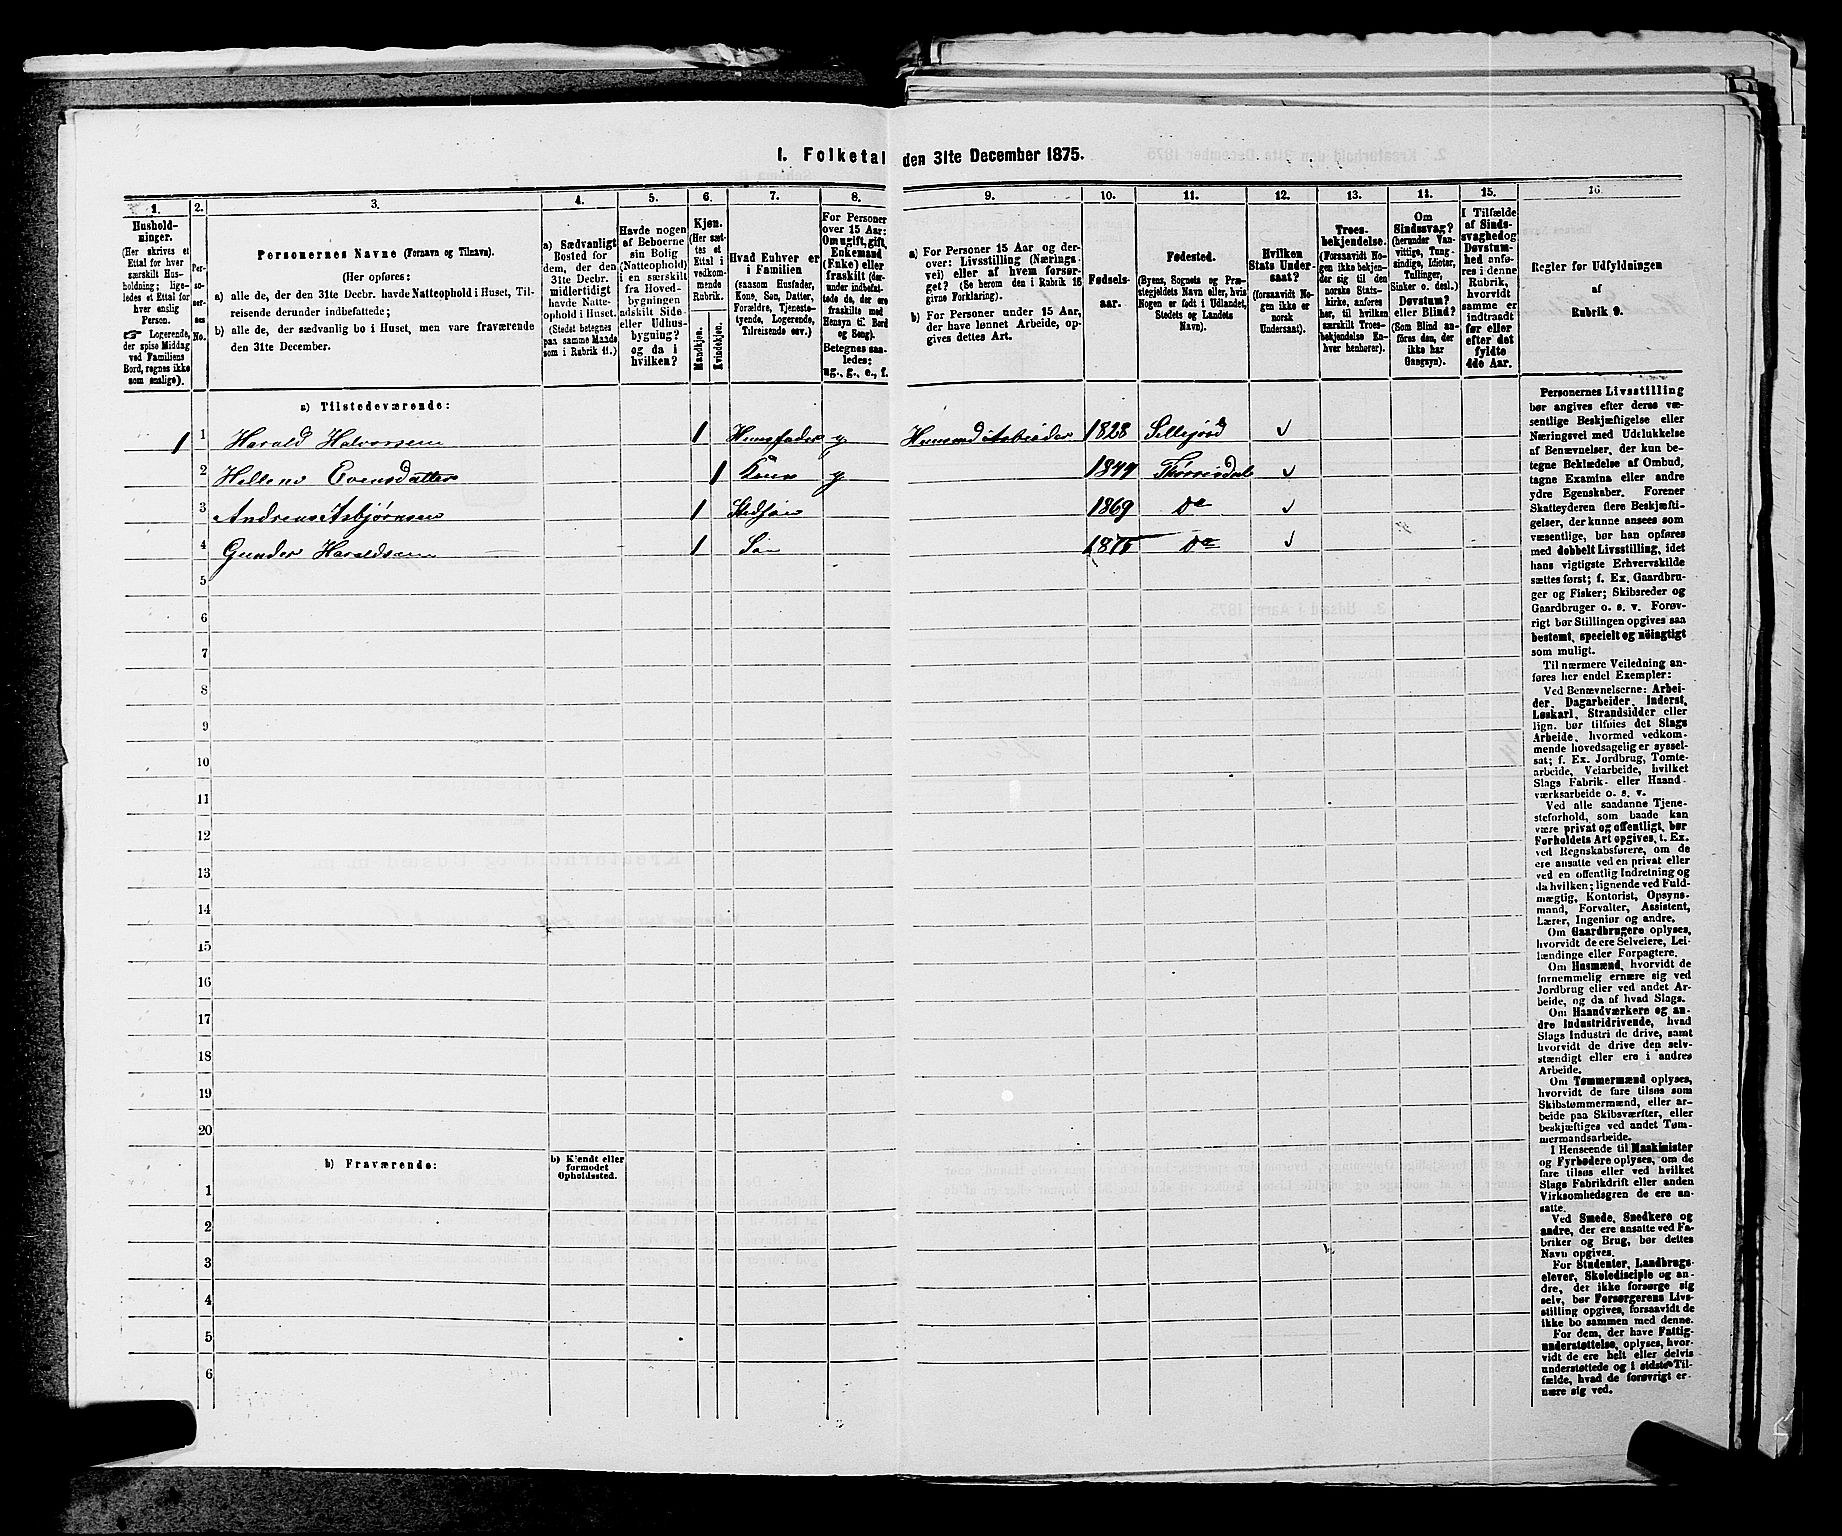 1. Folketal den 31te December 1875.
1.
2.
3.
4.
5.
6.
7.
8.
9.
10.
11.
12.
13.
14.
15.
16.
Hushold-
ninger.
(Her skrives et
Ettal for hver
særskilt Hus-
holdning; lige-
ledes et Ettal for
hver enslig
Person.
☞ Logerende,
der spise Middag
ved Familiens
Bord, regnes ikke
som enslige).
Per-
so-
ner-
nes
No.
Personernes Navne (Fornavn og Tilnavn).
(Her opføres:
a) alle de, der den 31te Decbr. havde Natteophold i Huset, Til-
reisende derunder indbefattede;
b) alle de, der sædvanlig bo i Huset, men vare fraværende
den 31te December.
a) Sædvanligt
Bosted for
dem, der den
31te Decbr.
midlertidigt
havde Natte-
ophold i Huset.
(Stedet betegnes
paa samme Maade
som i Rubrik 11.)
Havde nogen
af Beboerne
sin Bolig
(Natteophold)
i en særskilt
fra Hoved-
bygningen
adskilt Side-
eller Udhus-
bygning?
og da i
hvilken?
Kjøn.
(Her sæt-
tes et
Ettal i
vedkom-
mende
Rubrik.
Mandkjøn.
Kvindekjøn.
Hvad Enhver er
i Familien
(saasom Husfader,
Kone, Søn, Datter,
Forældre, Tjeneste-
tyende, Logerende,
Tilreisende osv.)
For Personer
over 15 Aar:
Om ugift, gift,
Enkemand
(Enke) eller
fraskilt (der-
under indbefat-
tede de, der ere
fraskilte med
Hensyn til Bord
og Seng).
Betegnes saa-
ledes:
ug., g., e., f.
a) For Personer 15 Aar og der-
over: Livsstilling (Nærings-
vei) eller af hvem forsør-
get? (Se herom den i Rubrik 16
givne Forklaring).
b) For Personer under 15 Aar,
der have lønnet Arbeide, op-
gives dettes Art.
Fødsels-
aar.
Fødested.
(Byens, Sognets og Præ-
stegjeldets Navn eller, hvis
Nogen er født i Udlandet,
Stedets og Landets
Navn).
Hvilken
Stats Under-
saat?
(forsaavidt No-
gen ikke er
norsk
Undersaat).
Troes-
bekjendelse.
(Forsaavidt No-
gen ikke bekjen-
der sig til den
norske Stats-
kirke, anføres
her, til hvilken
særskilt Troes-
bekjendelse En-
hver henhører).
Om
Sindssvag?
(herunder Van-
vittige, Tung-
sindige, Idioter,
Tullinger,
Sinker o. desl.)
Døvstum?
eller Blind?
(Som Blind an-
føres den, der
ikke har
Gangsyn).
I Tilfælde
af Sinds-
svaghed og
Døvstum-
hed anfø-
res i denne
Rubrik,
hvorvidt
samme er
indtraadt
før eller
efter det
fyldte
4de Aar.
Regler for Udfyldningen
af
Rubrik 9.
a) Tilstedeværende:
1 1 Harald Halvorsen 1 Huusfader g Husmand Arbeider 1828 Sillejord
2 Hellene Evensdatter 1 Kone g 1844 Tørrisdal
3 Andreas Asbjørnsen 1 Stedsøn 1869 Do
4 Gunder Haraldsen 1 Søn 1875 Do
5
6
7
8
9
10
11
12
13
14
15
16
17
18
19
20
b) Fraværende:
b) Kjendt eller
formodet
Opholdssted.
1
2
3
4
5
6
Personernes Livsstilling
bør angives efter deres væ-
sentlige Beskjæftigelse eller
Næringsvei med Udelukkelse
af Benævnelser, der kun be-
tegne Beklædelse af Ombud,
tagne Examina eller andre
ydre Egenskaber. Forener
Skatteyderen flere Beskjæfti-
gelser, der kunne ansees som
væsentlige, bør han opføres
med dobbelt Livsstilling, idet
hans vigtigste Erhvervskilde
sættes først; f. Ex. Gaardbru-
ger og Fisker; Skibsreder og
Gaardbruger o. s. v. Forøv-
rigt bør Stillingen opgives saa
bestemt, specielt og nöiagtigt
som muligt.
Til nærmere Veiledning an-
føres her endel Exempler:
Ved Benævnelserne: Arbei-
der, Dagarbeider, Inderst,
Løskarl, Strandsidder eller
lign. bør tilføies det Slags
Arbeide, hvormed vedkom-
mende hovedsagelig er syssel-
sat; f. Ex. Jordbrug, Tomte-
arbeide, Veiarbeide, hvilket
Slags Fabrik- eller Haand-
værksarbeide o. s. v.
Ved alle saadanne Tjene-
steforhold, som baade kan
være privat og offentligt, bør
Forholdets Art opgives, t. Ex.
ved Regnskabsførere, om de
ere ansatte ved en privat eller
ved en offentlig Indretning og
da hvilken; lignende ved Fuld-
mægtig, Kontorist, Opsyns-
mand, Forvalter, Assistent,
Lærer, Ingeniør og andre.
Om Gaardbrugere oplyses,
hvorvidt de ere Selveiere, Lei-
lændinge eller Forpagtere.
Om Husmænd, hvorvidt de
fornemmelig ernære sig ved
Jordbrug eller ved andet Ar-
beide, og da af hvad Slags.
Om Haandværkere og an-
dre Industridrivende, hvad
Slags Industri de drive, samt
hvorvidt de drive den selv-
stændigt eller ere i andres
Arbeide.
Om Tømmermænd oplyses,
hvorvidt de fare tilsøs som
Skibstømmermænd, eller ar-
beide paa Skibsværfter, eller
beskjæftiges ved andet Tøm-
mermandsarbeide.
I Henseende til Maskinister
og Fyrbødere oplyses, om de
fare tilsøs eller ved hvilket
Slags Fabrikdrift eller anden
Virksomhedsgren de ere an-
satte.
Ved Smede, Snedkere og
andre, der ere ansatte ved Fa-
briker og Brug, bør dettes
Navn opgives.
For Studenter, Landbrugs-
elever, Skoledisciple og an-
dre, der ikke forsørge sig
selv, bør Forsørgerens Livs-
stilling opgives, forsaavidt de
ikke bo sammen med denne.
For dem, der have Fattig-
understøttelse, oplyses, hvor-
vidt de ere helt eller delvis
understøttede og i sidste Til-
fælde, hvad de forøvrigt er-
nære sig ved.